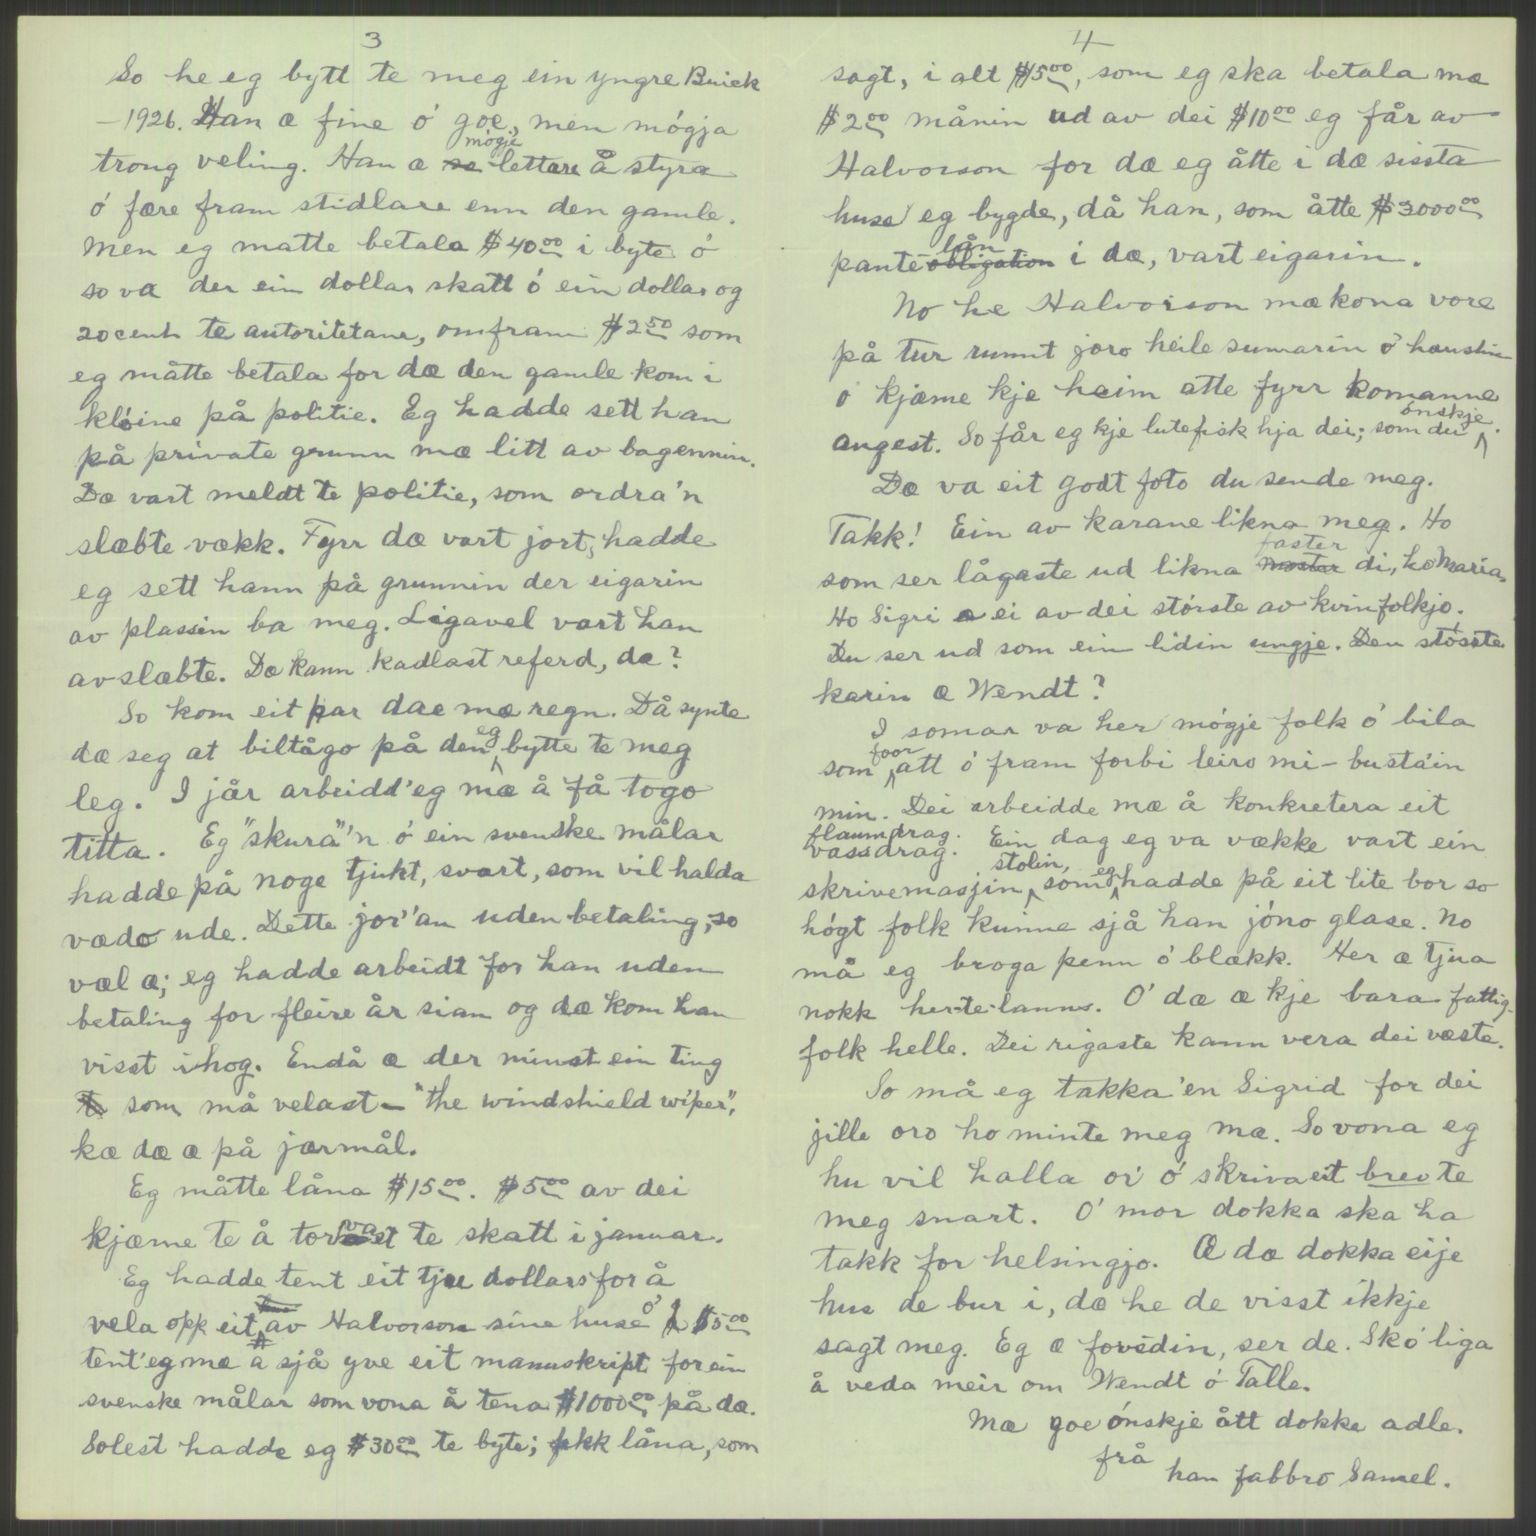 3
So he eg bytt te meg ein yngre Buick
- 1926. Han æ fine ó goe, men mógja
trong veling. Han æ mógje lettare å styra
ó føre fram stidlare enn den gamle.
Men eg matte betala $40.00 i byte ó
so va der ein dollar skatt ó ein dollar og
20 cent te autoritetane, omfram $2.50 som
eg måtte betala for dæ den gamle kom i
klóine på politie. Eg hadde sett han
på private grunn mæ litt av bagennin.
Dæ vart meldt te politie, som ordra'n
slæbte vækk. Fyrr dæ vart jort, hadde
eg sett hann på grunnin der eigarin
av plassin ba meg. Ligavel vart han
avslæbte. Dæ kann kadlast referd, da?
So kom eit par dae mæ regn. Då synte
dæ seg at biltågo på den eg bytte te meg
leg. I jår arbeidd'eg mæ å få togo
titta. Eg "skura"'n ó ein svenske målar
hadde på noge tjukt, svart, som vil halda
vædo ude. Dette jor''an uden betaling, so
væl æ; eg hadde arbeidt for han uden
betaling for fleire år sian og dæ kom han
visst ihog. Endå æ der minst ein ting
som må velast - "the windshield wiper",
kæ dæ æ på jærmål.
Eg måtte låna $15.00. $5.00 av dei
kjæme te å torvast te skatt i januar.
Eg hadde tent eit tjue dollars for å
vela opp eit av Halvorson sine huse ó $5.00
tent'eg mæ å sjå yve eit manuskript for ein
svenske målar som vona å tena $1000.00 på dæ.
Solest hadde eg $30.00 te byte; fekk låna, som
4
sagt, i alt $15.00, som eg ska betala mæ
$2.00 månin ud av dei $10.00 eg får av
Halvorson for dæ eg åtte i dæ sissta
huse eg bygde, då han, som åtte $3000.00
pantelån i dæ, vart eigarin.
No he Halvorson mæ kona vore
på tur runnt joro heile sumarin ó haustin
ó kjæme kje heim atte fyrr komanne
angest. So får eg kje lutefisk hja dei; som du ónskje.
Dæ va eit godt foto du sende meg.
Takk! Ein av karane likna meg. Ho
som ser lågaste ud likna faster di, ho Maria.
Ho Sigri æ ei av dei stórste av kvinfolkjo.
Du ser ud som ein lidin ungje. Den stósste
karin æ Wendt?
I somar va her mógje folk ó bila
som foor att ó fram forbi leiro mi - bustain
min. Dei arbeidde mæ å konkretera eit
flaumdrag.
vassdrag. Ein dag eg va vække vart ein
skrivemasjin stolin, som eg hadde på eit lite bor so
hógt folk kunne sjå han jóno glase. No
må eg broga penn ó blækk. Her æ tjua
nokk her-te-lanns. O' dæ æ kje bara fattig-
folk helle. Dei rigaste kann vera dei væste.
So må eg takka'en Sigrid for dei
jille oro ho minte meg mæ. So vona eg
hu vil halla ór ó skriva eit brev te
meg snart. O' mor dokka ska ha
takk for helsingjo. Æ dæ dokka eije
hus de bur i, dæ he de visst ikkje
sagt meg. Eg æ forvidin, ser de. Skó liga
å veda meir om Wendt ó Talle.
Mæ goe ónskje ått dokke adle.
frå
han fabbro Samel.